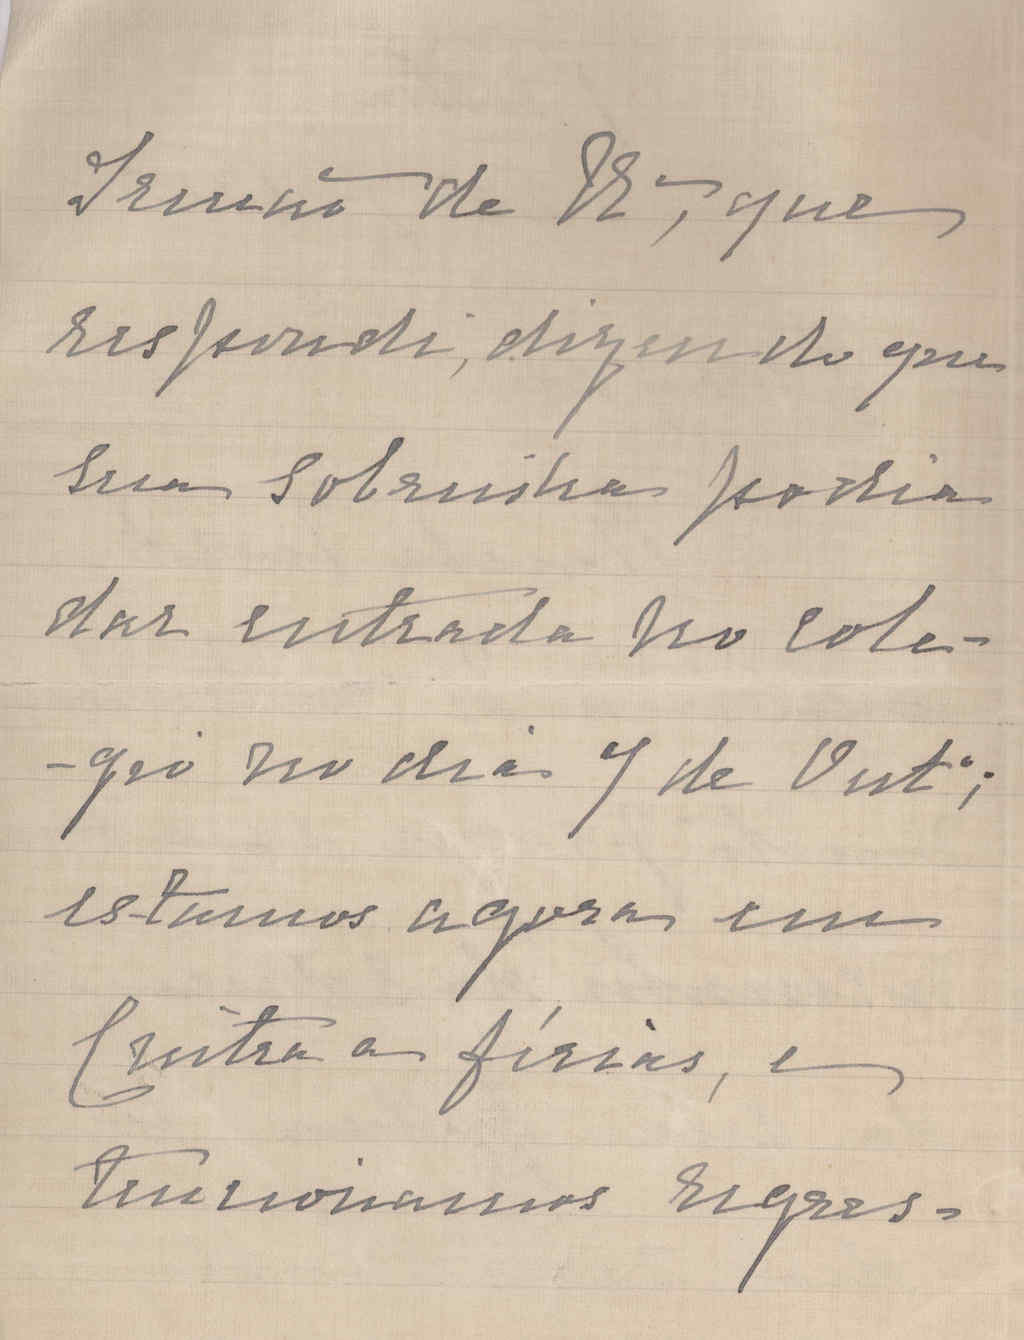 Irmão de V. Ex.ª, que
respondi, dizendo que
sua sobrinha podia
dar entrada no cole-
-gio no dia 7 de Out.º;
estamos agora em
Cintra a férias, e
tencionamos regres-